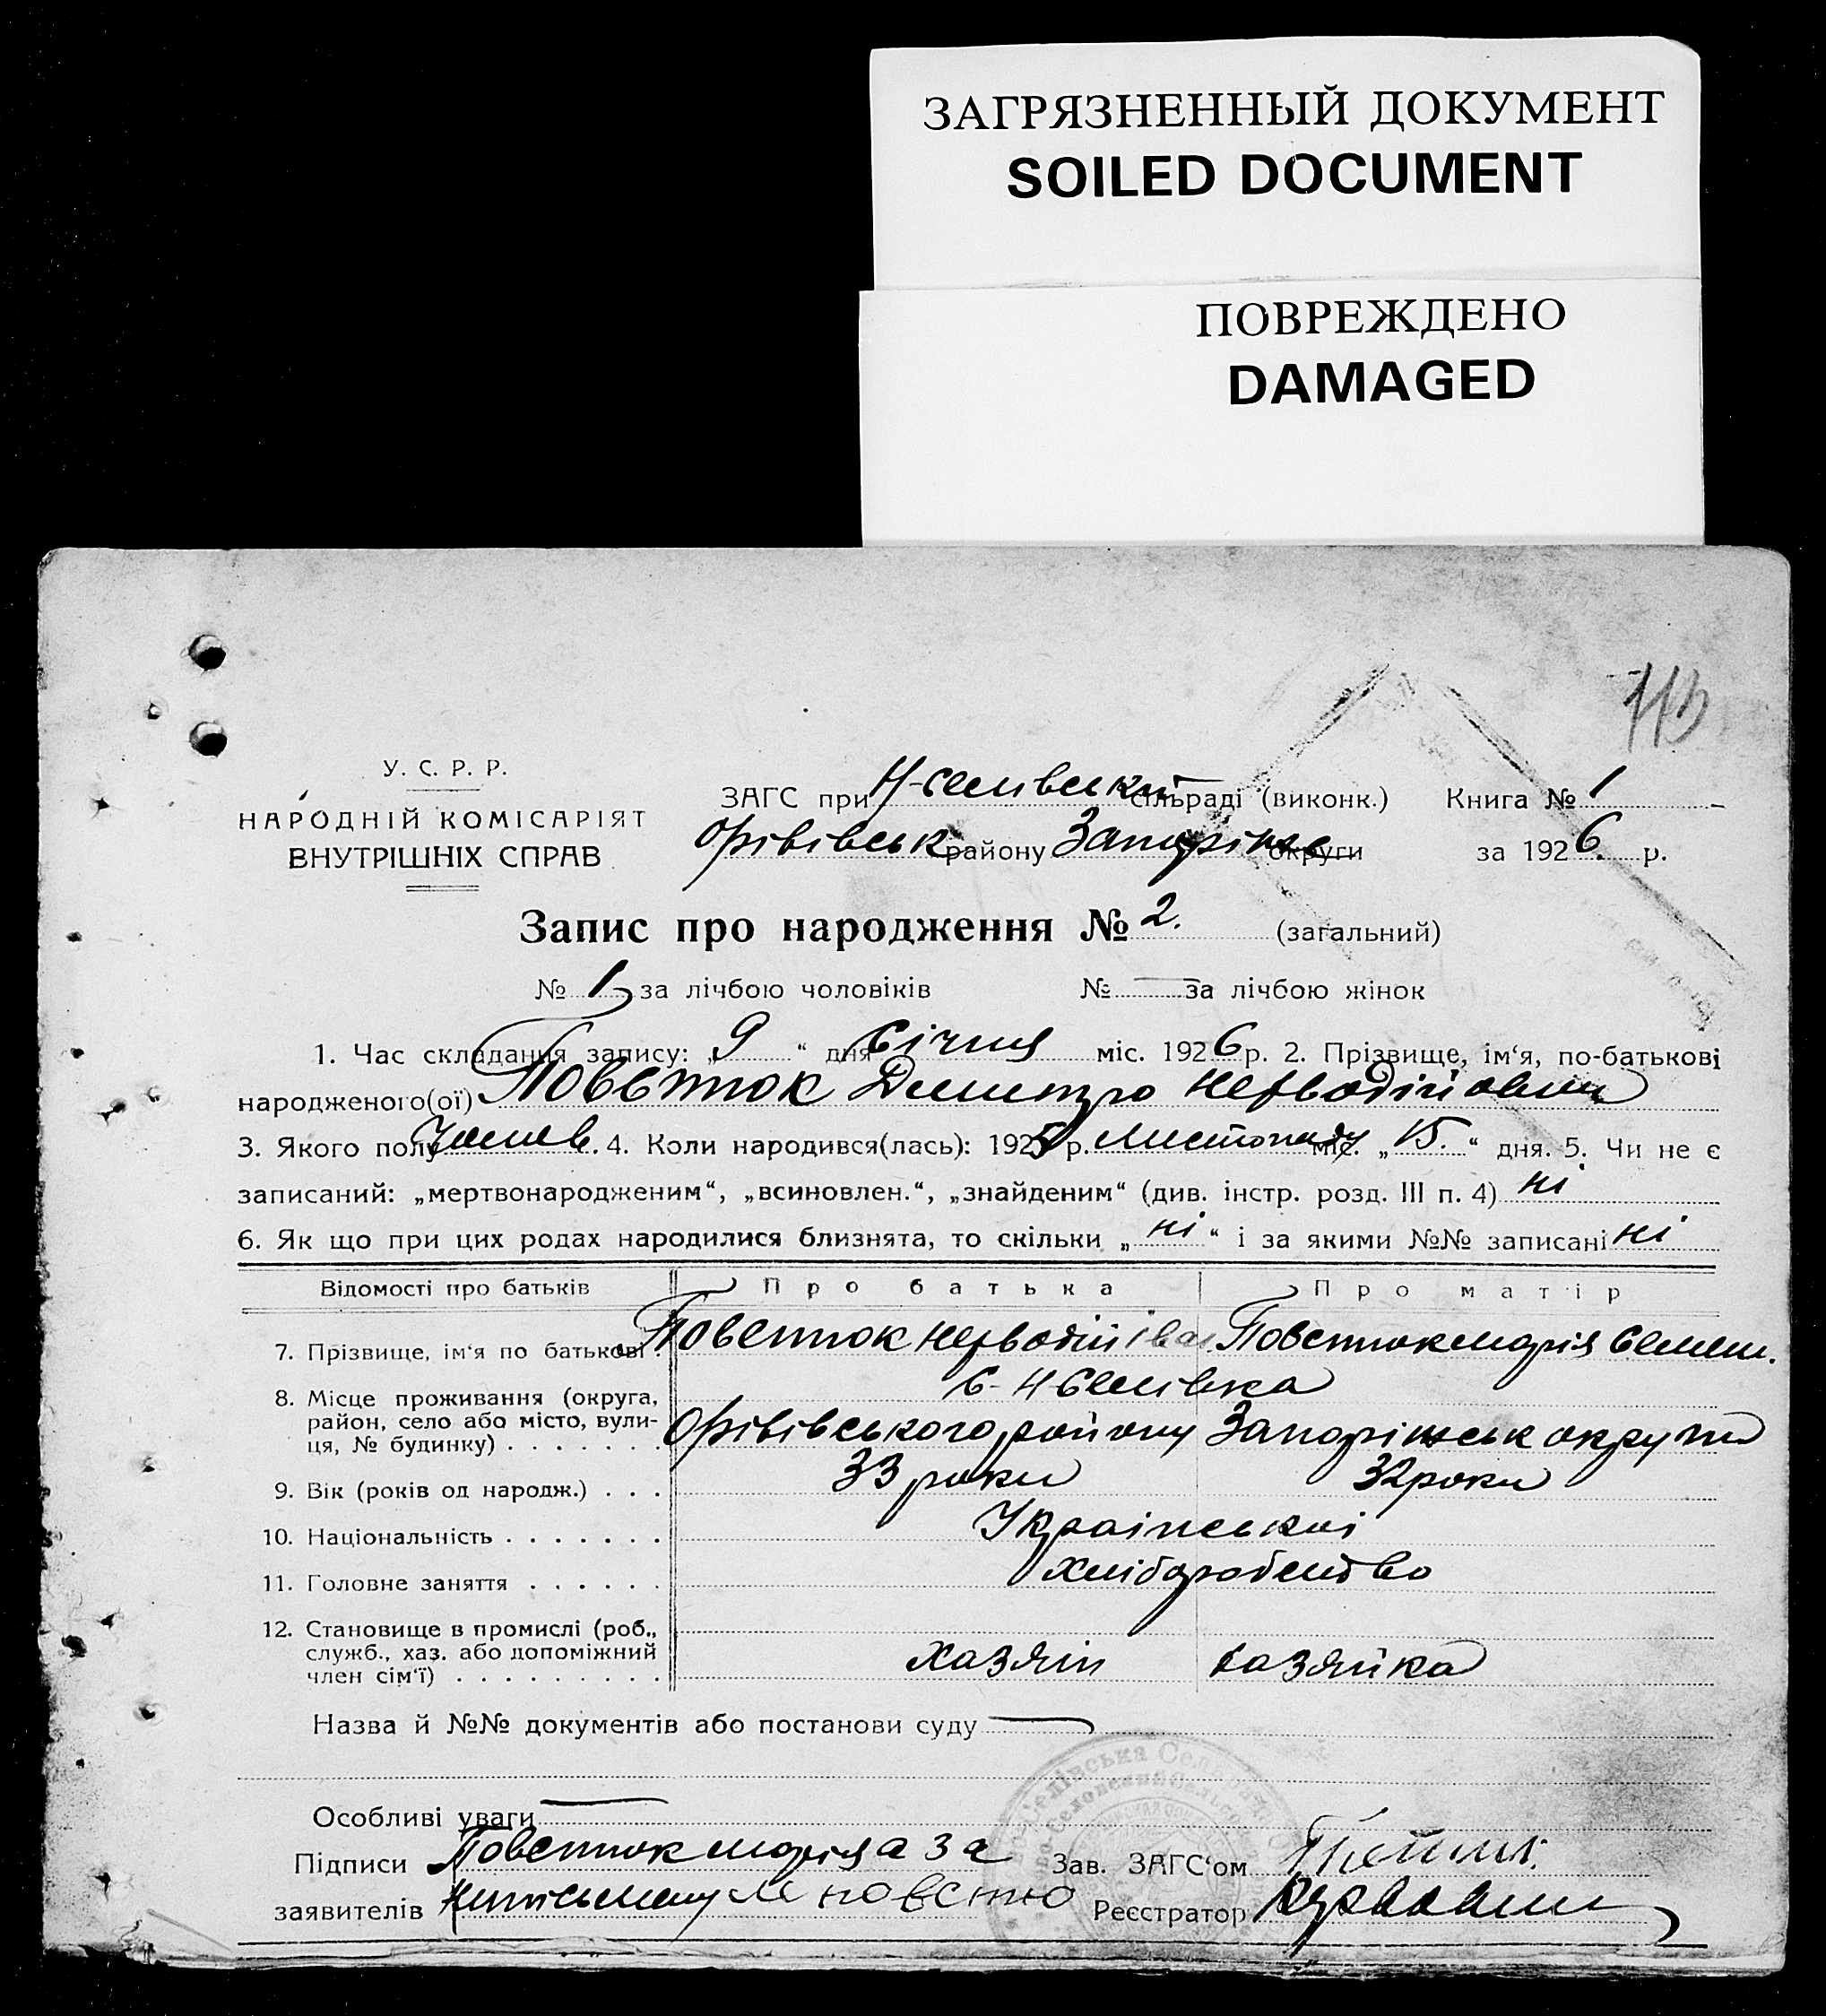 ЗАГРЯЗНЕННЫЙ ДОКУМЕНТ
SOILED DOCUMENT
ПОВРЕЖДЕНО
DAMAGED
У. С. Р. Р.
НАРОДНІЙ КОМІСАРІЯТ
ВНУТРІШНІХ СПРАВ
ЗАГС при Н-Селивській сільраді (виконк.) Книга № 1
Оріхівськ району Запоріжс округи за 1926 р.
Запис про народження № 2. (загальний)
№ 1 за лічбою чоловіків № — за лічбою жінок
1. Час складання запису: „9“ дня Січня міс. 1926 р. 2. Прізвище, ім‘я, по-батькові
народженого(ої) Повєткок Дмитро
3. Якого полу Чолов. 4. Коли народився(лась): 1925 р. Листопаду міс. „15.“ дня. 5. Чи не є
записаний: „мертвонародженим“, „всиновлен.“, „знайденим“ (див. інстр. розд. III п. 4) ні
6. Як що при цих родах народилися близнята, то скільки „ні“ і за якими №№ записані ні
Відомості про батьків Про батька Про матір
7. Прізвище, ім‘я по батькові Марія Семен.
8. Місце проживання (округа, район, село або місто, вулиця, № будинку) С-Н Селівка
Оріхівського району Запоріжськ округи
9. Вік (років од народж.) 33 роки 32 роки
10. Національність Українські
11. Головне заняття Хліборобство
12. Становище в промислі (роб., служб., хаз. або допоміжний член сім‘ї) хазяін хазяйка
Назва й №№ документів або постанови суду —
Особливі уваги —
Підписи Марія а за Зав. ЗАГС‘ом
заявителів Реєстратор